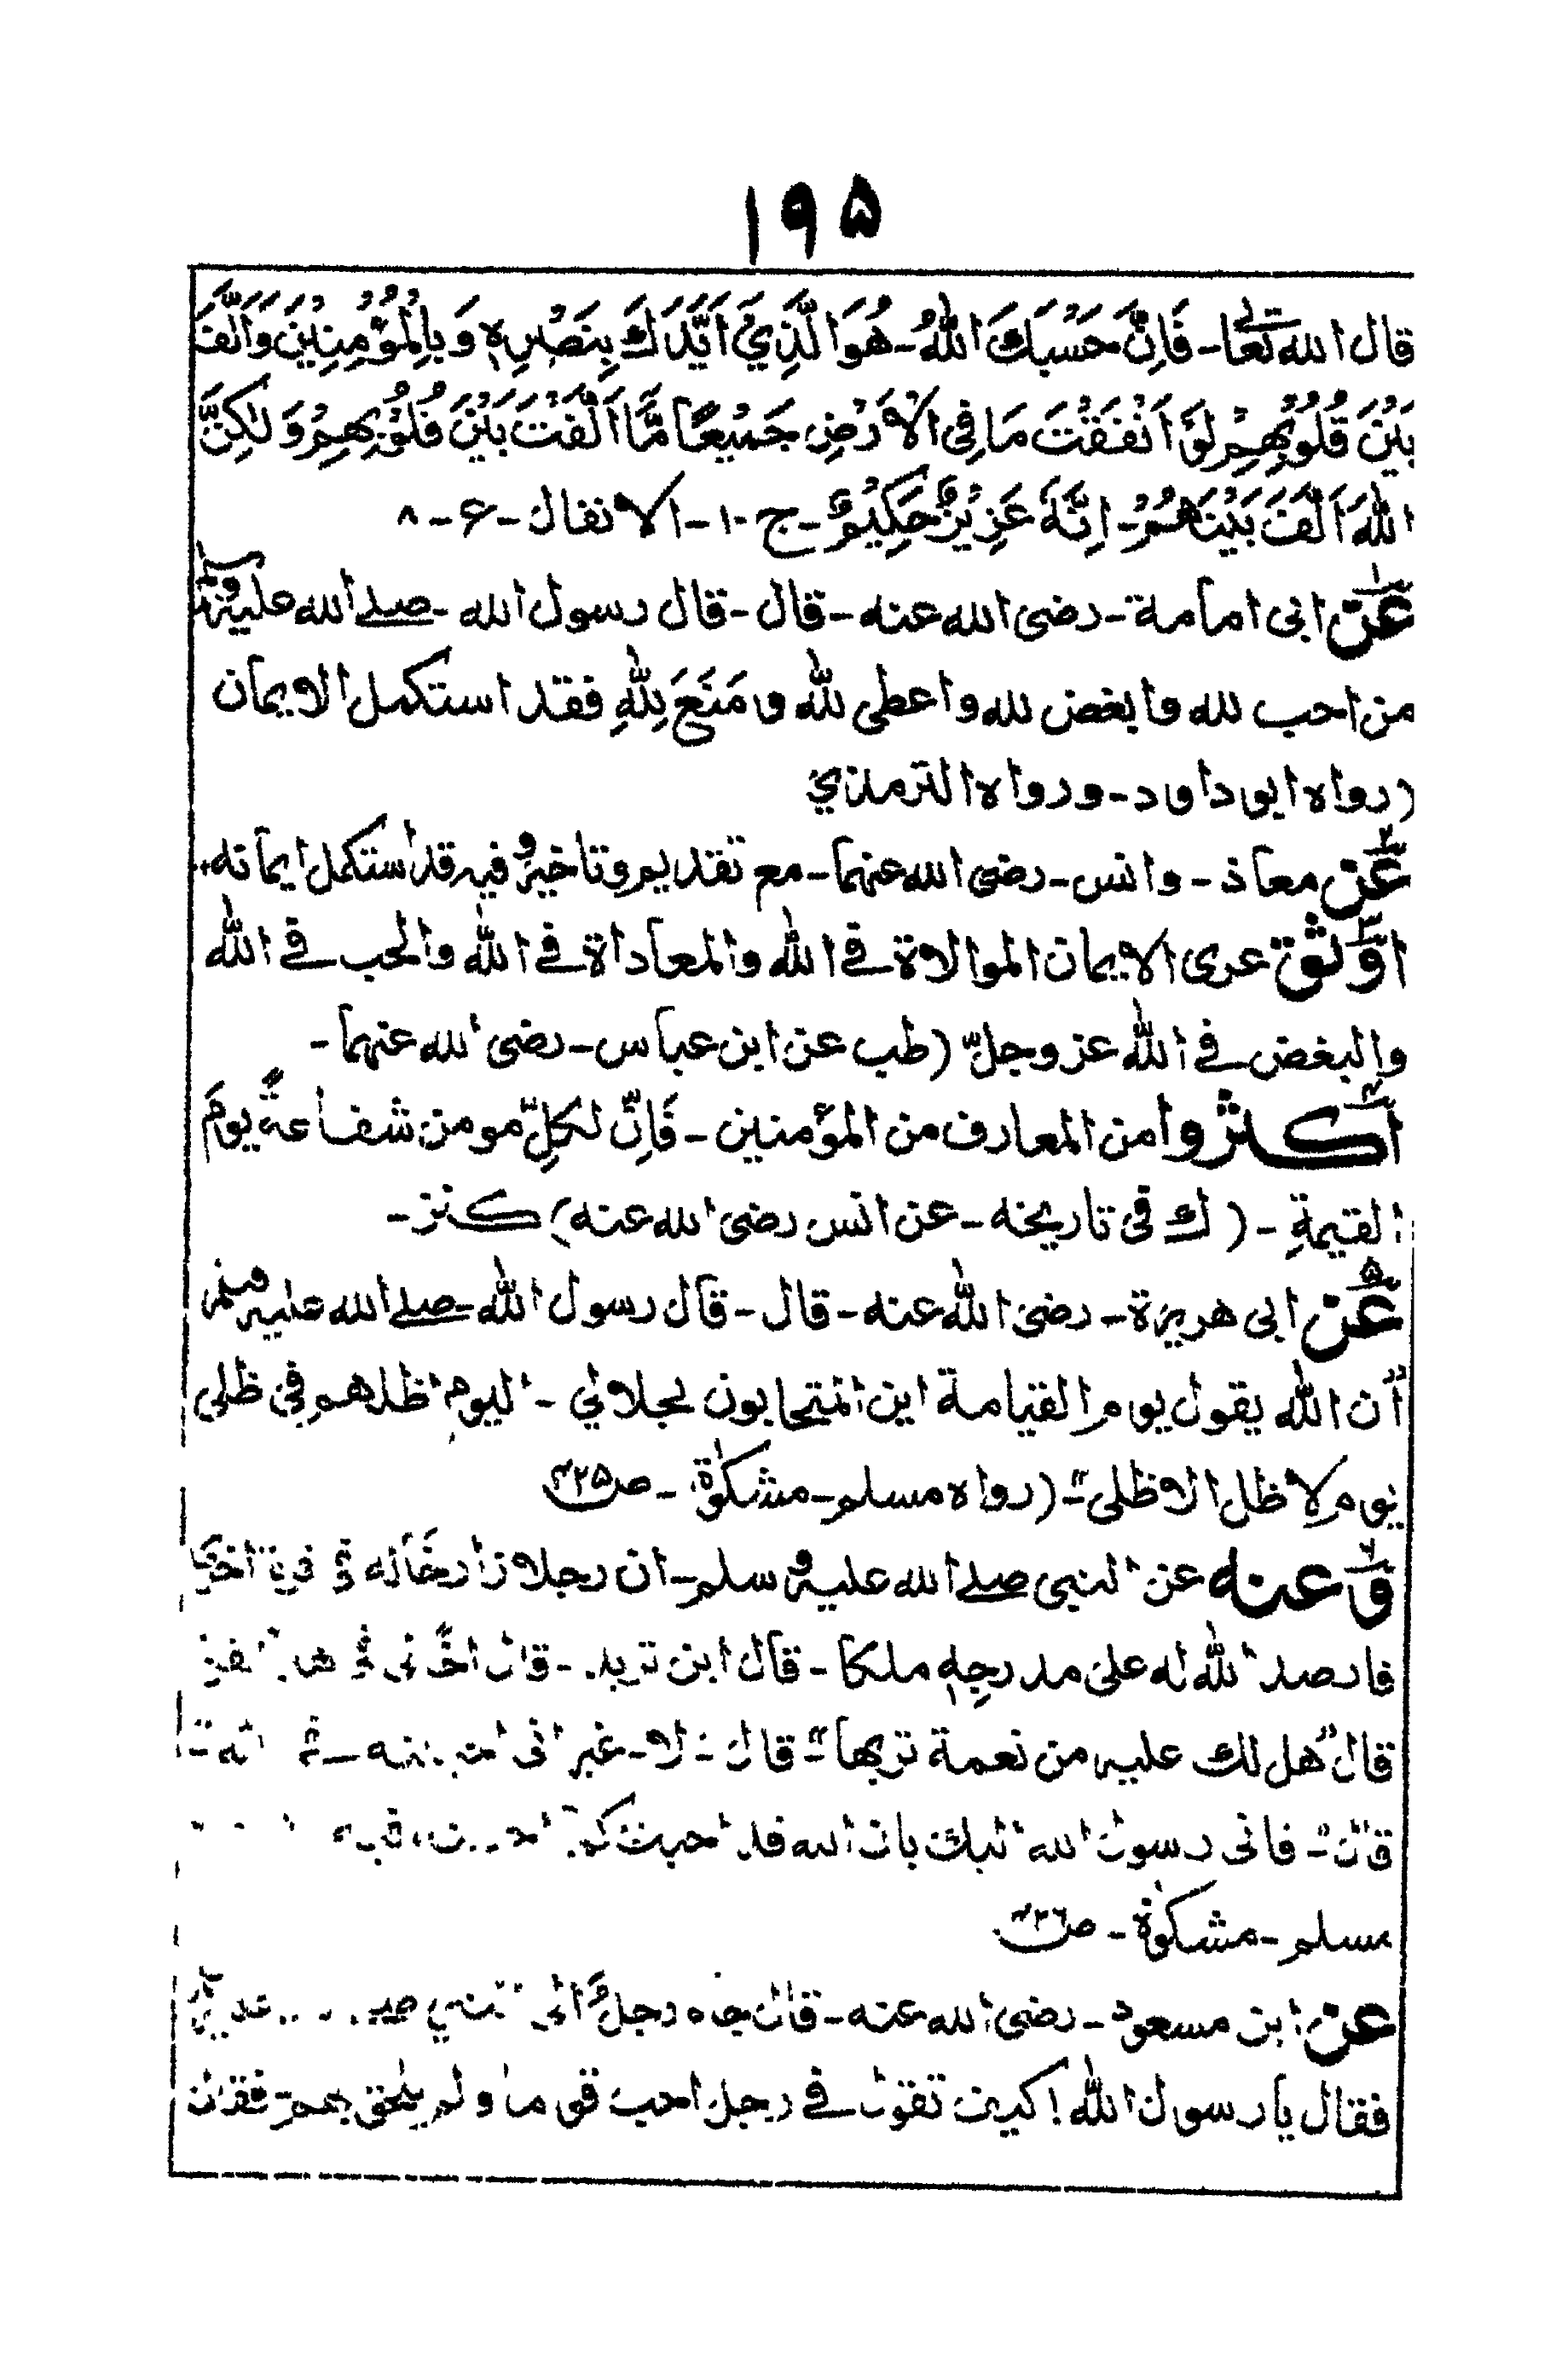 ۱۹۵
قال الله تعالى - فَاِنَّ حَسْبَكَ اللهُ - هُوَ الَّذِيْ اَيَّدَكَ بِنَصْرِهٖ وَبِالْمُؤْمِنِيْنَ وَاَلَّفَ
بَيْنَ قُلُوْبِهِمْ لَوْ اَنْفَقْتَ مَا فِى الْاَرْضِ جَمِيْعًا مَّا اَلَّفْتَ بَيْنَ قُلُوْبِهِمْ وَلٰكِنَّ
اللهَ اَلَّفَ بَيْنَهُمْ - اِنَّهٗ عَزِيْزٌ حَكِيْمٌ - ج ۱۰ - الانفال - ع - ۸
۱ عن ابى امامة - رضى الله عنه - قال - قال رسول الله - صلے الله عليه وسلم
من احب لله وابغض لله واعطى لله ومَنَعَ لِلّٰهِ فقد استكمل الايمان
(رواه ابو داود - ورواه الترمذي
۲ عن معاذ - وانس - رضى الله عنهما - مع تقديم وتاخير وفيه قد استكمل ايمانه
۳ اوثق عرى الايمان الموالاة فى الله والمعاداة فى الله والحب فى الله
والبغض فى الله عز وجلّ (طب عن ابن عباس - رضى الله عنهما -
۴ اكثروا من المعارف من المؤمنين - فَاِنّ لكلِّ مومن شفاعةً يومَ
القيمةِ - (ك فى تاريخه - عن انس رضى الله عنه) كنز -
۵ عن ابى هريرة - رضى الله عنه - قال - قال رسول الله - صلے الله عليه وسلم
"ان الله يقول يوم القيامة اين المتحابون بجلالي - اليوم اظلهم في ظلى
يوم لا ظل الا ظلى" - (رواه مسلم - مشكوٰة - ص ۴۲۵
۶ وعنه عن النبى صلے الله عليه وسلم - ان رجلا زار اخًا له فى قرية اخرى
فارصد الله له على مدرجِهٖ ملكا - قال اين تريد - قال اخًا لى فى هذه
قال "هل لك عليه من نعمة تربها" - قال - لا - غير انى
قال - فانى رسول الله اليك بان الله قد احبك كما
مسلم - مشكوٰة - ص ۴۲۶
عن ابن مسعود - رضى الله عنه - قال جاء رجلٌ الى النبي
فقال يا رسول الله! كيف تقول فى رجل احب قوما ولم يلحق بهم - فقال